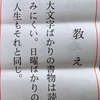 教え
大文字ばかりの書物は読
みにくい。日曜ばかりの
人生もそれと同じ。